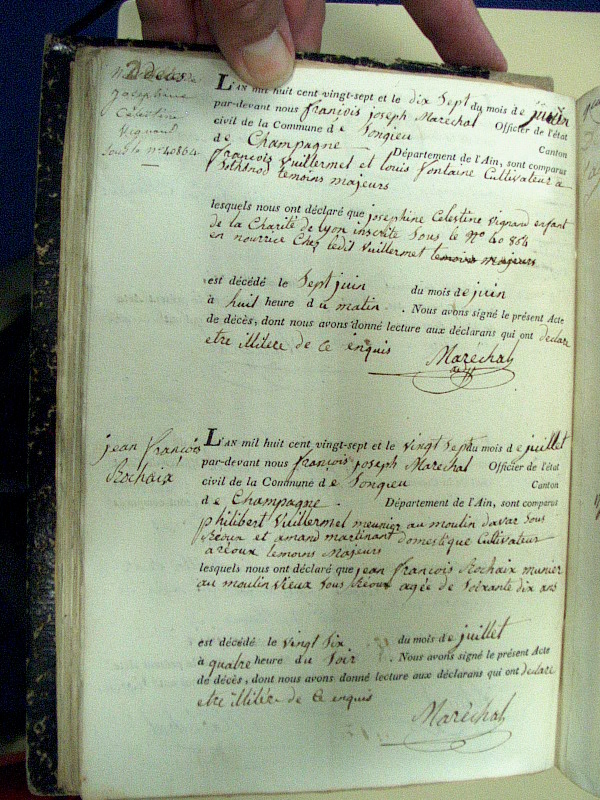 Décès de
josephine
Celestine
Vignard
sous le nº 40864
L'AN mil huit cent vingt-sept et le dix Sept du mois de juin
par-devant nous françois joseph Maréchal Officier de l'état
civil de la Commune de Songieu Canton
de Champagne Département de l'Ain, sont comparus
francois Vuillermet et louis fontaine Cultivateur a
Sothonod temoins majeurs
lesquels nous ont déclaré que josephine Celestine Vignard enfant
de la Charité de lyon inscrite Sous le Nº 40 864
en nourrice Chez ledit Vuillermet temoins majeurs
est décédé le Sept juin du mois de juin
à huit heure du matin. Nous avons signé le présent Acte
de décès, dont nous avons donné lecture aux déclarans qui ont declare
etre illiterė de Ce enquis
Maréchal
jean françois
Rochaix
L'AN mil huit cent vingt-sept et le vingt Sept du mois de juillet
par-devant nous françois joseph Maréchal Officier de l'état
civil de la Commune de Songieu Canton
de Champagne. Département de l'Ain, sont comparus
philibert Vuillermet meunier au moulin davar Sous
Reoux et amand martinant domestique Cultivateur
a reoux temoins Majeurs
lesquels nous ont déclaré que jean françois Rochaix munier
au moulin Vieux Sous Reoux agée de Soixante dix ans
est décédé le vingt Six du mois de juillet
à quatre heure du Soir. Nous avons signé le présent Acte
de décès, dont nous avons donné lecture aux déclarans qui ont declare
etre illiterė de Ce enquis
Maréchal